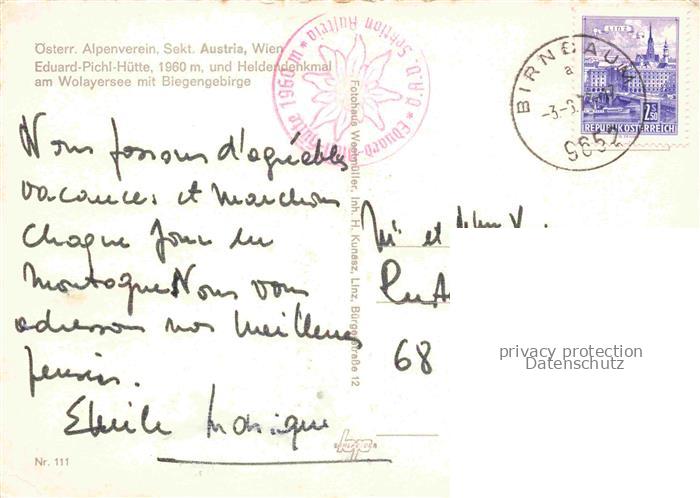 Österr. Alpenverein, Sekt. Austria, Wien
Eduard-Pichl-Hütte, 1960 m, und Heldendenkmal
am Wolayersee mit Biegengebirge
Nous faisons d'agréables
vacances et marchons
chaque jour en
montagne. Nous vous
adressons nos meilleures
pensées.
Monique
Nr. 111
Fotohaus Westmüller, Inh. H. Kunasz, Linz, Bürgerstraße 12
Sektion Austria d. Ö.A.V. * Eduard Pichl Hütte 1960 m *
LINZ
2.50
REPUBLIK ÖSTERREICH
BIRNBAUM
a
9652
et
68
privacy protection
Datenschutz